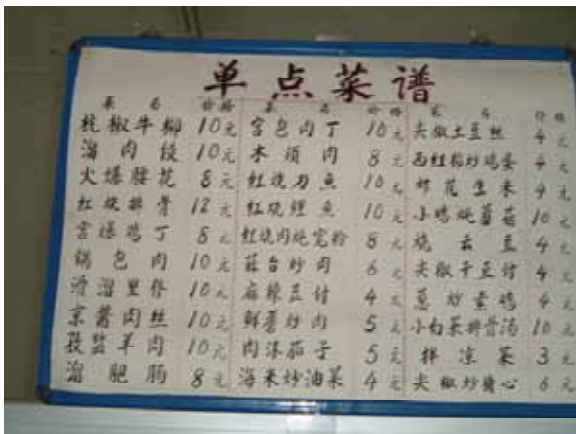 单点菜谱
菜名 价格 菜名 价格 菜名 价格
杭椒牛柳 10元 宫包肉丁 10元 尖椒土豆丝 4元
溜肉段 10元 木须肉 8元 西红柿炒鸡蛋 4元
火爆腰花 8元 红烧刀鱼 10元 炸花生米 4元
红烧排骨 12元 红烧鲤鱼 10元 小鸡炖蘑菇 10元
宫爆鸡丁 8元 红烧肉炖宽粉 8元 烧云豆 4元
锅包肉 10元 蒜台炒肉 6元 尖椒干豆付 4元
滑溜里脊 10元 麻辣豆付 4元 葱炒素鸡 4元
京酱肉丝 10元 鲜蘑炒肉 5元 小白菜排骨汤 10元
羊肉 10元 肉沫茄子 5元 拌凉菜 3元
溜肥肠 8元 海米炒油菜 4元 尖椒炒 心 6元